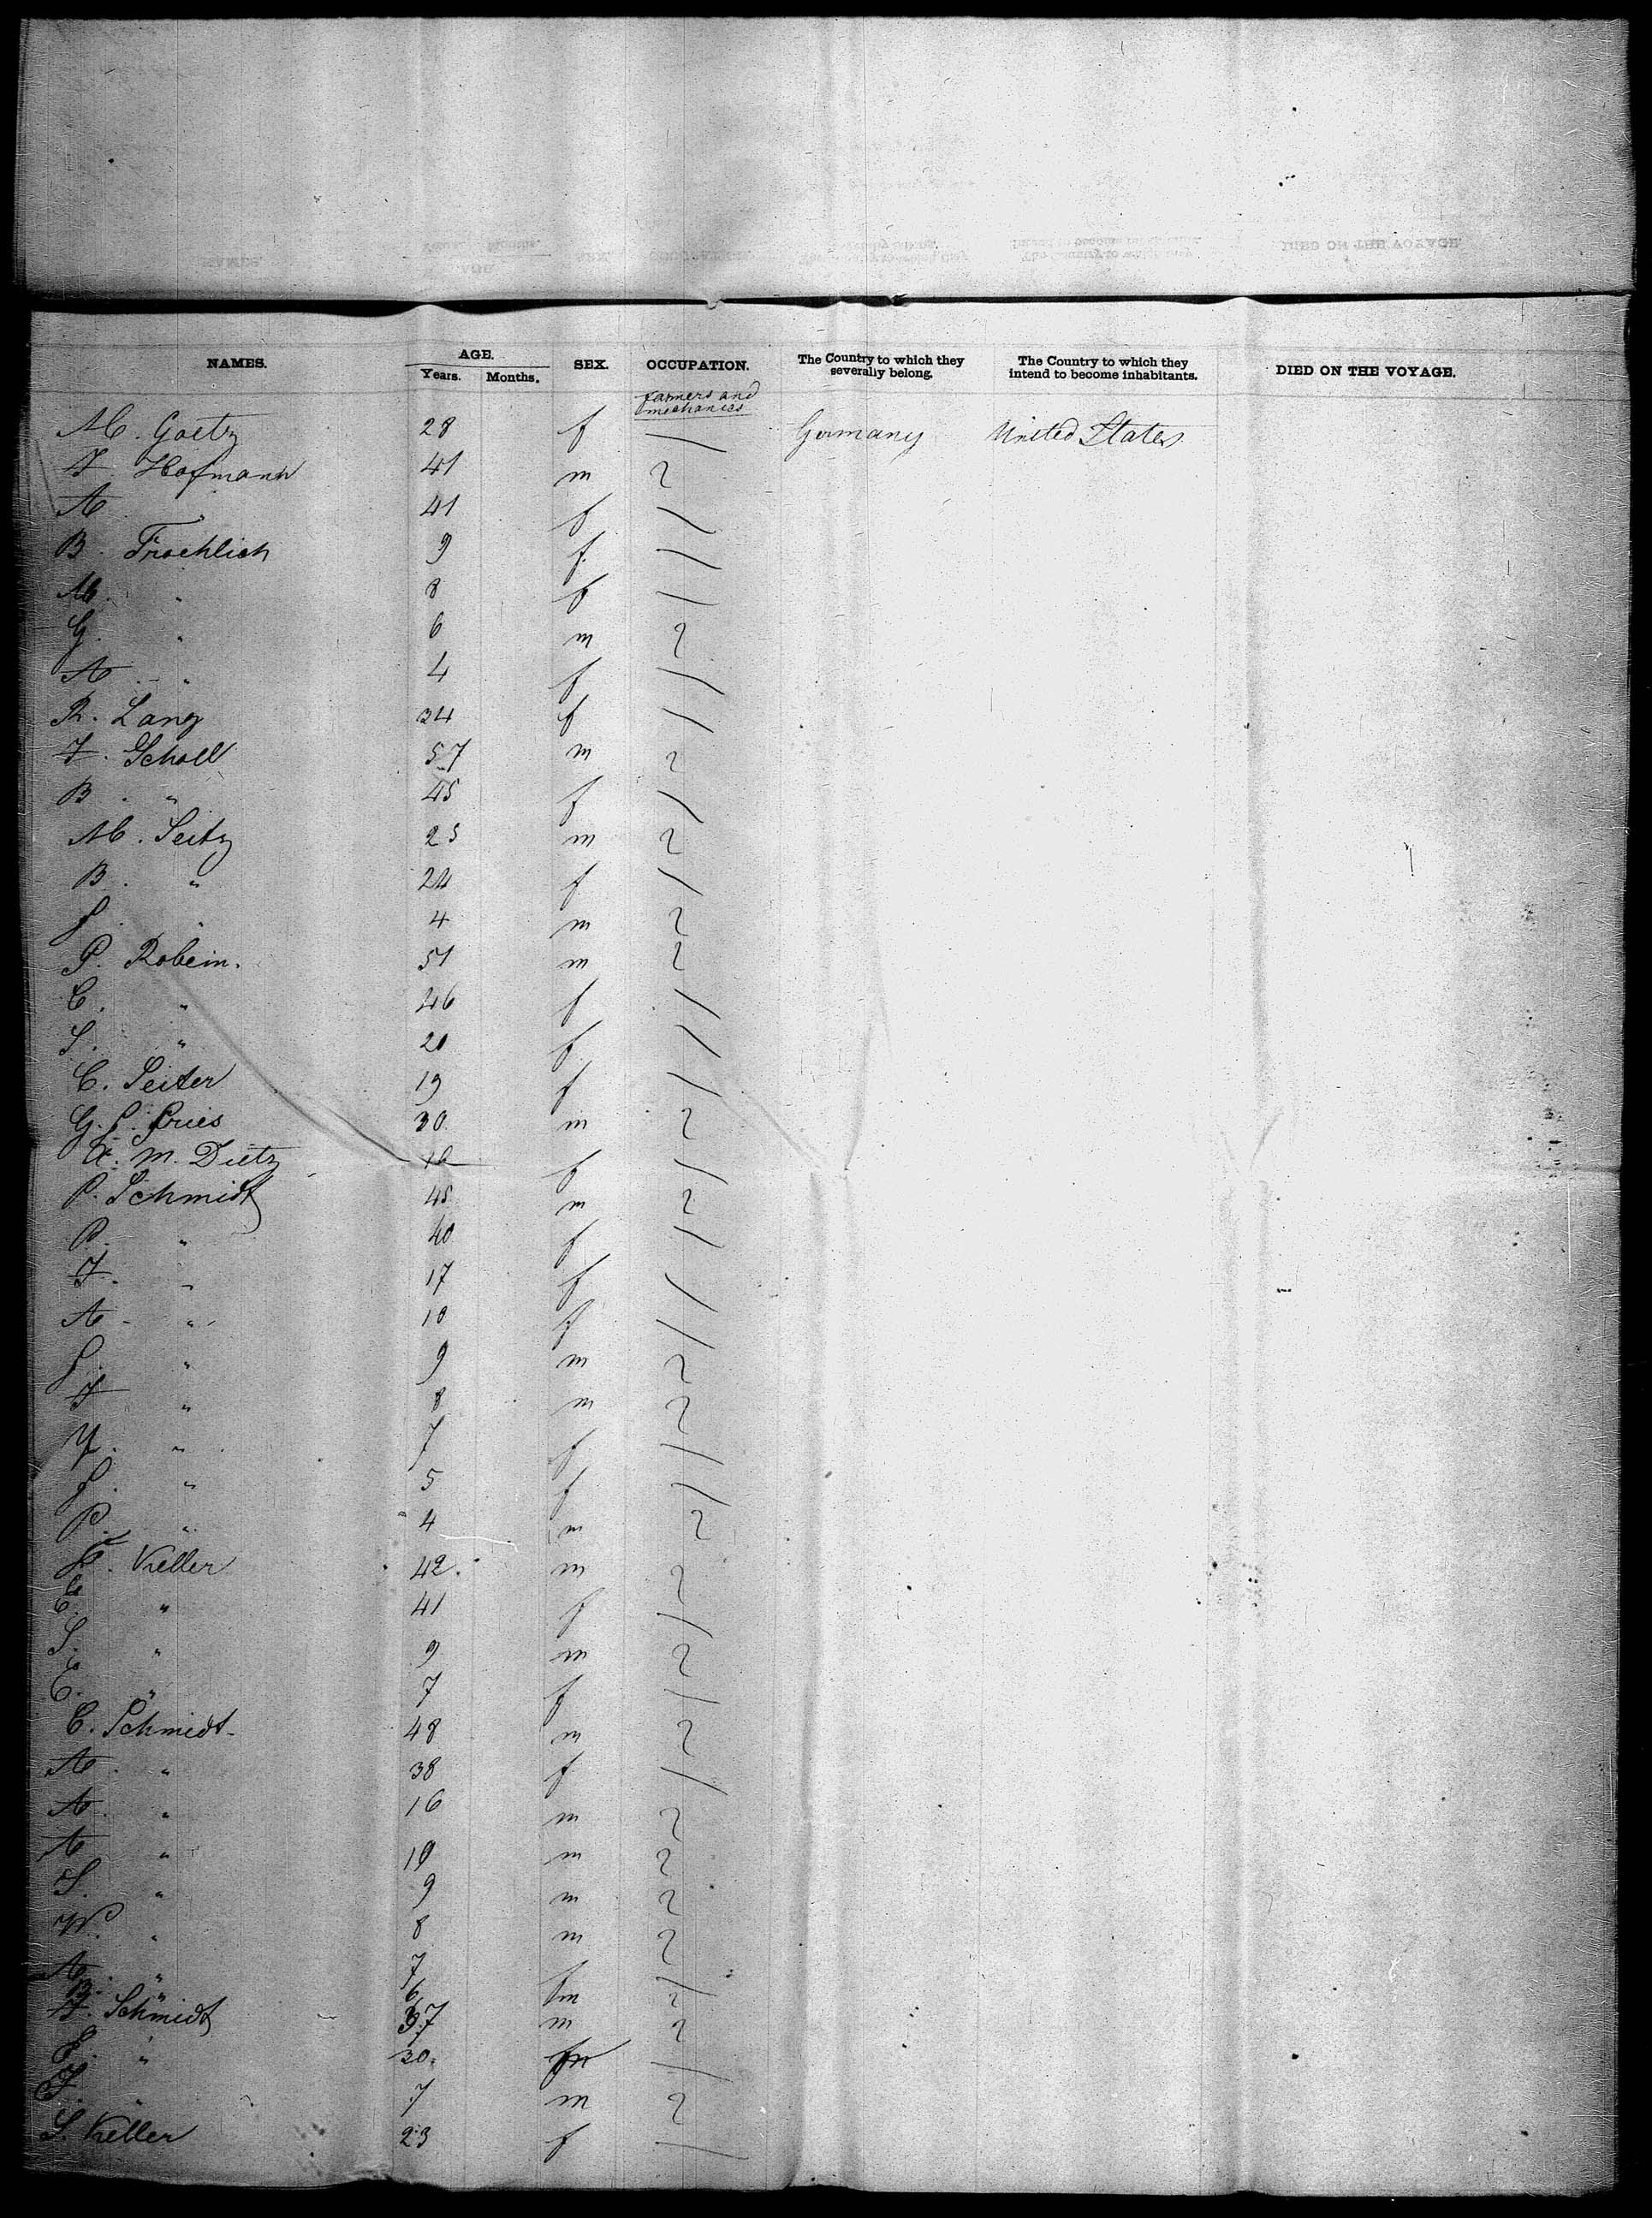 NAMES. AGE. SEX. OCCUPATION. The Country to which they severally belong. The Country to which they intend to become inhabitants. DIED ON THE VOYAGE.
Years. Months.
farmers and mechanics
M. Goetz 28 f Germany United States
F. Hofmann 41 m
A " 41 f
B. Froehlich 9 f
M. " 8 f
G. " 6 m
A. " 4 f
R. Lang 34 f
F. Scholl 57 m
B. " 45 f
M. Seitz 25 m
B. " 24 f
J. " 4 m
P. Robein. 51 m
C. " 46 f
S. " 20 f
C. Seiter 19 f
G. J. Gries 30 m
A. M. Dietz f
P. Schmidt 45 m
P. " 40 f
F. " 17 f
A. " 10 f
J. " 9 m
F " 8 m
" 7 f
J. " 5 f
P. " 4 m
F. Keller 42. m
E. " 41 f
S. " 9 m
E. " 7 f
C. Schmidt 48 m
A. " 38 f
A. " 16 m
A " 10 m
S. " 9 m
W. " 8 m
A. " 7 f
B. " 6 m
F. Schmidt 37 m
E. " 30.
" 7 m
S. Keller 23 f